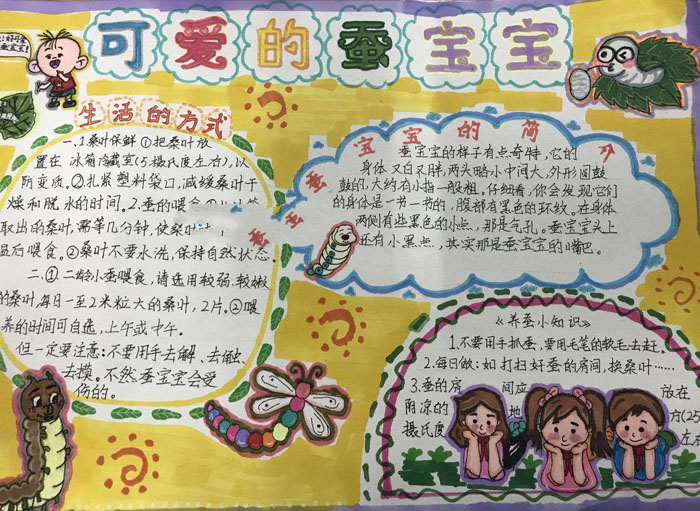 可爱的蚕宝宝
蚕宝宝!
生活的方式
一、1.桑叶保鲜 ①把桑叶放
置在 冰箱冷藏室(5摄氏度左右),以
防变质。②扎紧塑料袋口,减缓桑叶干
燥和脱水的时间。2.蚕的喂食
取出的桑叶,需等几分钟,使桑叶
温后喂食。②桑叶不要水洗,保持自然状态。
二、① 二龄小蚕喂食,请选用较弱、较嫩
的桑叶,每日一至2米粒大的桑叶,2片。②喂
养的时间可自选,上午或中午。
但一定要注意:不要用手去解、去触、
去摸。不然蚕宝宝会受
伤的。
蚕宝宝的简介
蚕宝宝的样子有点奇特,它的
身体又白又胖,两头略小中间大,外形圆鼓
鼓的,大约有小指一般粗。仔细看,你会发现它们
的身体是一节一节的,腹部有黑色的环纹。在身体
两侧有些黑色的小点,那是气孔。蚕宝宝头上
还有小黑点,其实那是蚕宝宝的嘴巴。
《养蚕小知识》
1.不要用手抓蚕,要用毛笔的软毛去赶。
2.每日做:如打扫好蚕的房间,换桑叶……
3.蚕的房间应放在
阴凉的地方(25
摄氏度左右